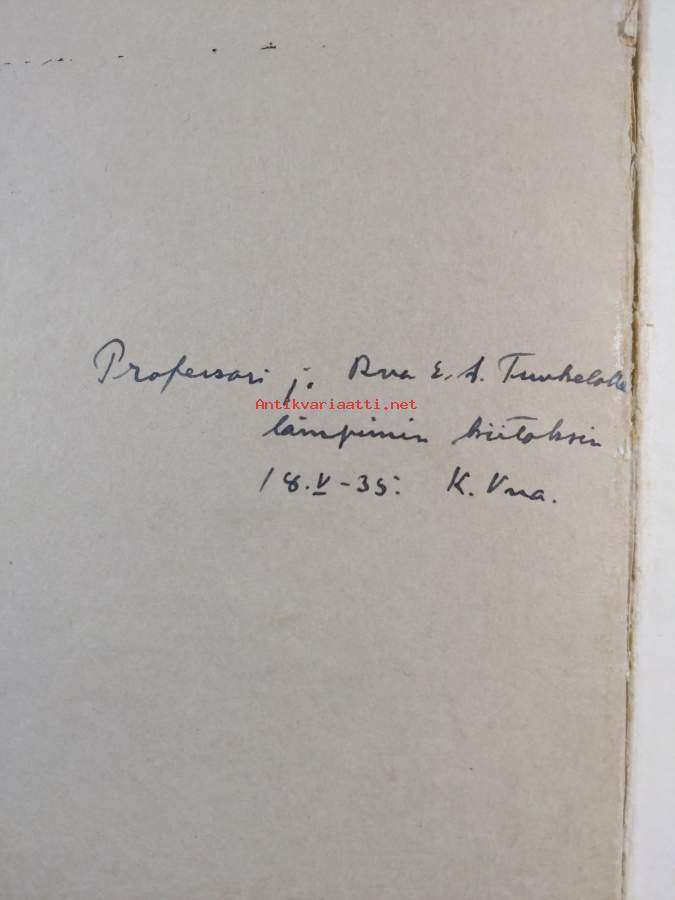 Professori j. Rva E. A. Tunkelolle
Antikvariaatti.net
lämpimin kiitoksin
18.V-35. K. Vna.